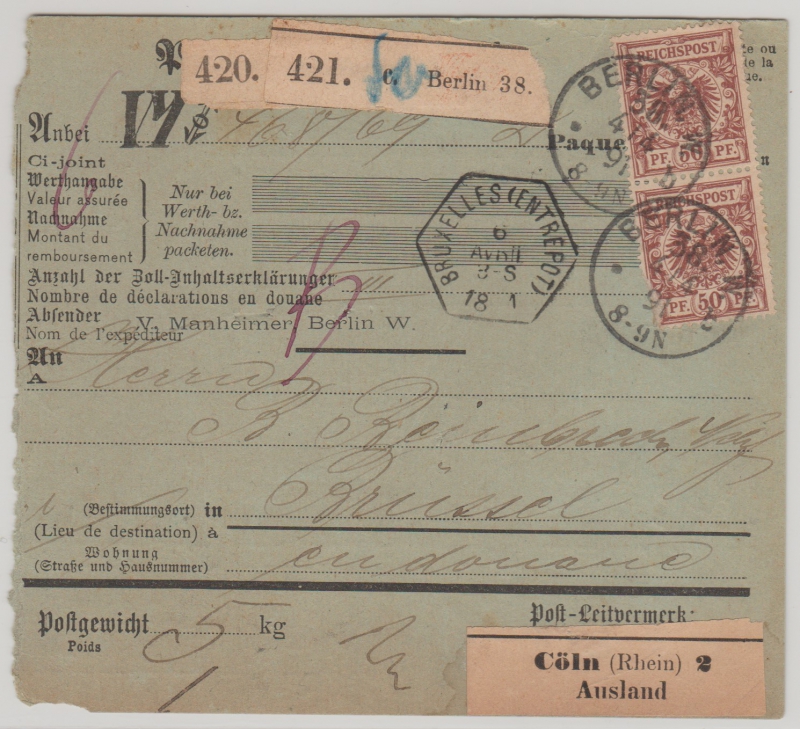 420. 421. c. Berlin 38.
te ou
te la
ue.
Anbei 468/69 Paque
Ci-joint
Werthangabe
Valeur assurée
Nachnahme
Montant du
remboursement
Nur bei
Werth- bz.
Nachnahme
packeten.
Anzahl der Zoll-Inhaltserklärungen
Nombre de déclarations en douane
Absender
Nom de l'expéditeur
V. Manheimer, Berlin W.
An
A
Herrn
B.
(Bestimmungsort) in Brüssel
(Lieu de destination) à
Wohnung
(Straße und Hausnummer) en douane
Postgewicht 5 kg
Poids
Post-Leitvermerk:
Cöln (Rhein) 2
Ausland
REICHSPOST
PF. 50 PF.
REICHSPOST
PF. 50 PF.
BERLIN W
38
4/4
91
8-9N
BERLIN W
38
91
8-9N
BRUXELLES (ENTREPOT)
6
AVRIL
3-S
18 1